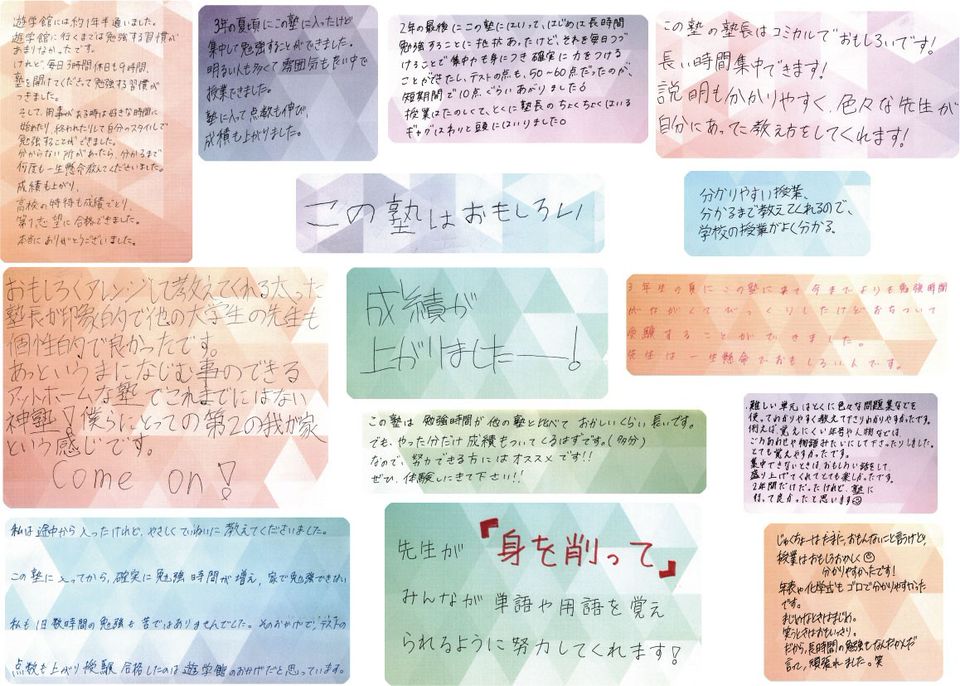 遊学館には約1年半通いました。
遊学館に行くまでは勉強する習慣が
あまりなかったです。
けれど、毎日3時間、休日も9時間、
塾を開けてくださって勉強する習慣が
つきました。
そして、用事がある時は好きな時間に
始めたり、終われたりして自分のスタイルで
勉強することができました。
分からない所があったら、分かるまで
何度も一生懸命教えてくださいました。
成績も上がり、
高校の特待も成績でとり、
第1志望に合格できました。
本当にありがとうございました。
3年の夏頃にこの塾に入ったけど
集中して勉強することができました。
明るい人も多くて雰囲気も良い中で
授業できました。
塾に入って点数も伸び、
成績も上がりました。
2年の最後にこの塾にはいって、はじめは長時間
勉強することに抵抗あったけど、それを毎日つづ
けることで集中力も身につき確実に力をつける
ことができたし、テストの点も、50~60点だったのが、
短期間で10点ぐらいあがりました
授業はたのしくて、とくに塾長のちょくちょくはいる
ギャグはわりと頭にはいりました。
この塾の塾長はコミカルでおもしろいです!
長い時間集中できます!
説明も分かりやすく、色々な先生が
自分にあった教え方をしてくれます!
この塾はおもしろい
分かりやすい授業、
分かるまで教えてくれるので、
学校の授業がよく分かる。
おもしろくアレンジして教えてくれる太った
塾長が印象的で他の大学生の先生も
個性的で良かったです。
あっというまになじむ事のできる
アットホームな塾でこれまでにはない
神塾!僕らにとっての第2の我が家
という感じです。
Come on!
成績が
上がりましたー!
3年生の夏にこの塾にきて今までよりも勉強時間
がながくてびっくりしたけどおちついて
受験することができました。
先生は一生懸命でおもしろい人です。
この塾は勉強時間が他の塾と比べておかしいくらい長いです。
でも、やった分だけ成績もついてくるはずです。(多分)
なので、努力できる方にはオススメです!!
ぜひ、体験しにきて下さい!!
難しい単元はとくに色々な問題集などを
使ってわかりやすく教えて下さりわかりやすかったです。
例えば、覚えにくい年号や人物などは、
ごろあわせや物語みたいにして下さったりしました。
とても覚えやすかったです。
集中できないときは、おもしろい話をして、
盛り上げてくれてとても楽しかったです。
2年間だけだったけれど、塾に
行って良かったと思います
私は途中から入ったけれど、やさしくていねいに教えてくださいました。
この塾に入ってから、確実に勉強時間が増え、家で勉強できない
私も1日数時間の勉強も苦ではありませんでした。そのおかげで、テストの
点数も上がり受験合格したのは遊学館のおかげだと思っています。
先生が『身を削って』
みんなが単語や用語を覚え
られるように努力してくれます!
じゅくちょーはたまに、おもんないこと言うけど、
授業はおもしろおかしく
分かりやすかったです!
年表や化学式もゴロで分かりやすかった
です。
まじめなときはまじめ。
笑うときはおもいっきり。
だから、長時間の勉強もなんだかんだ
言って、頑張れました。笑